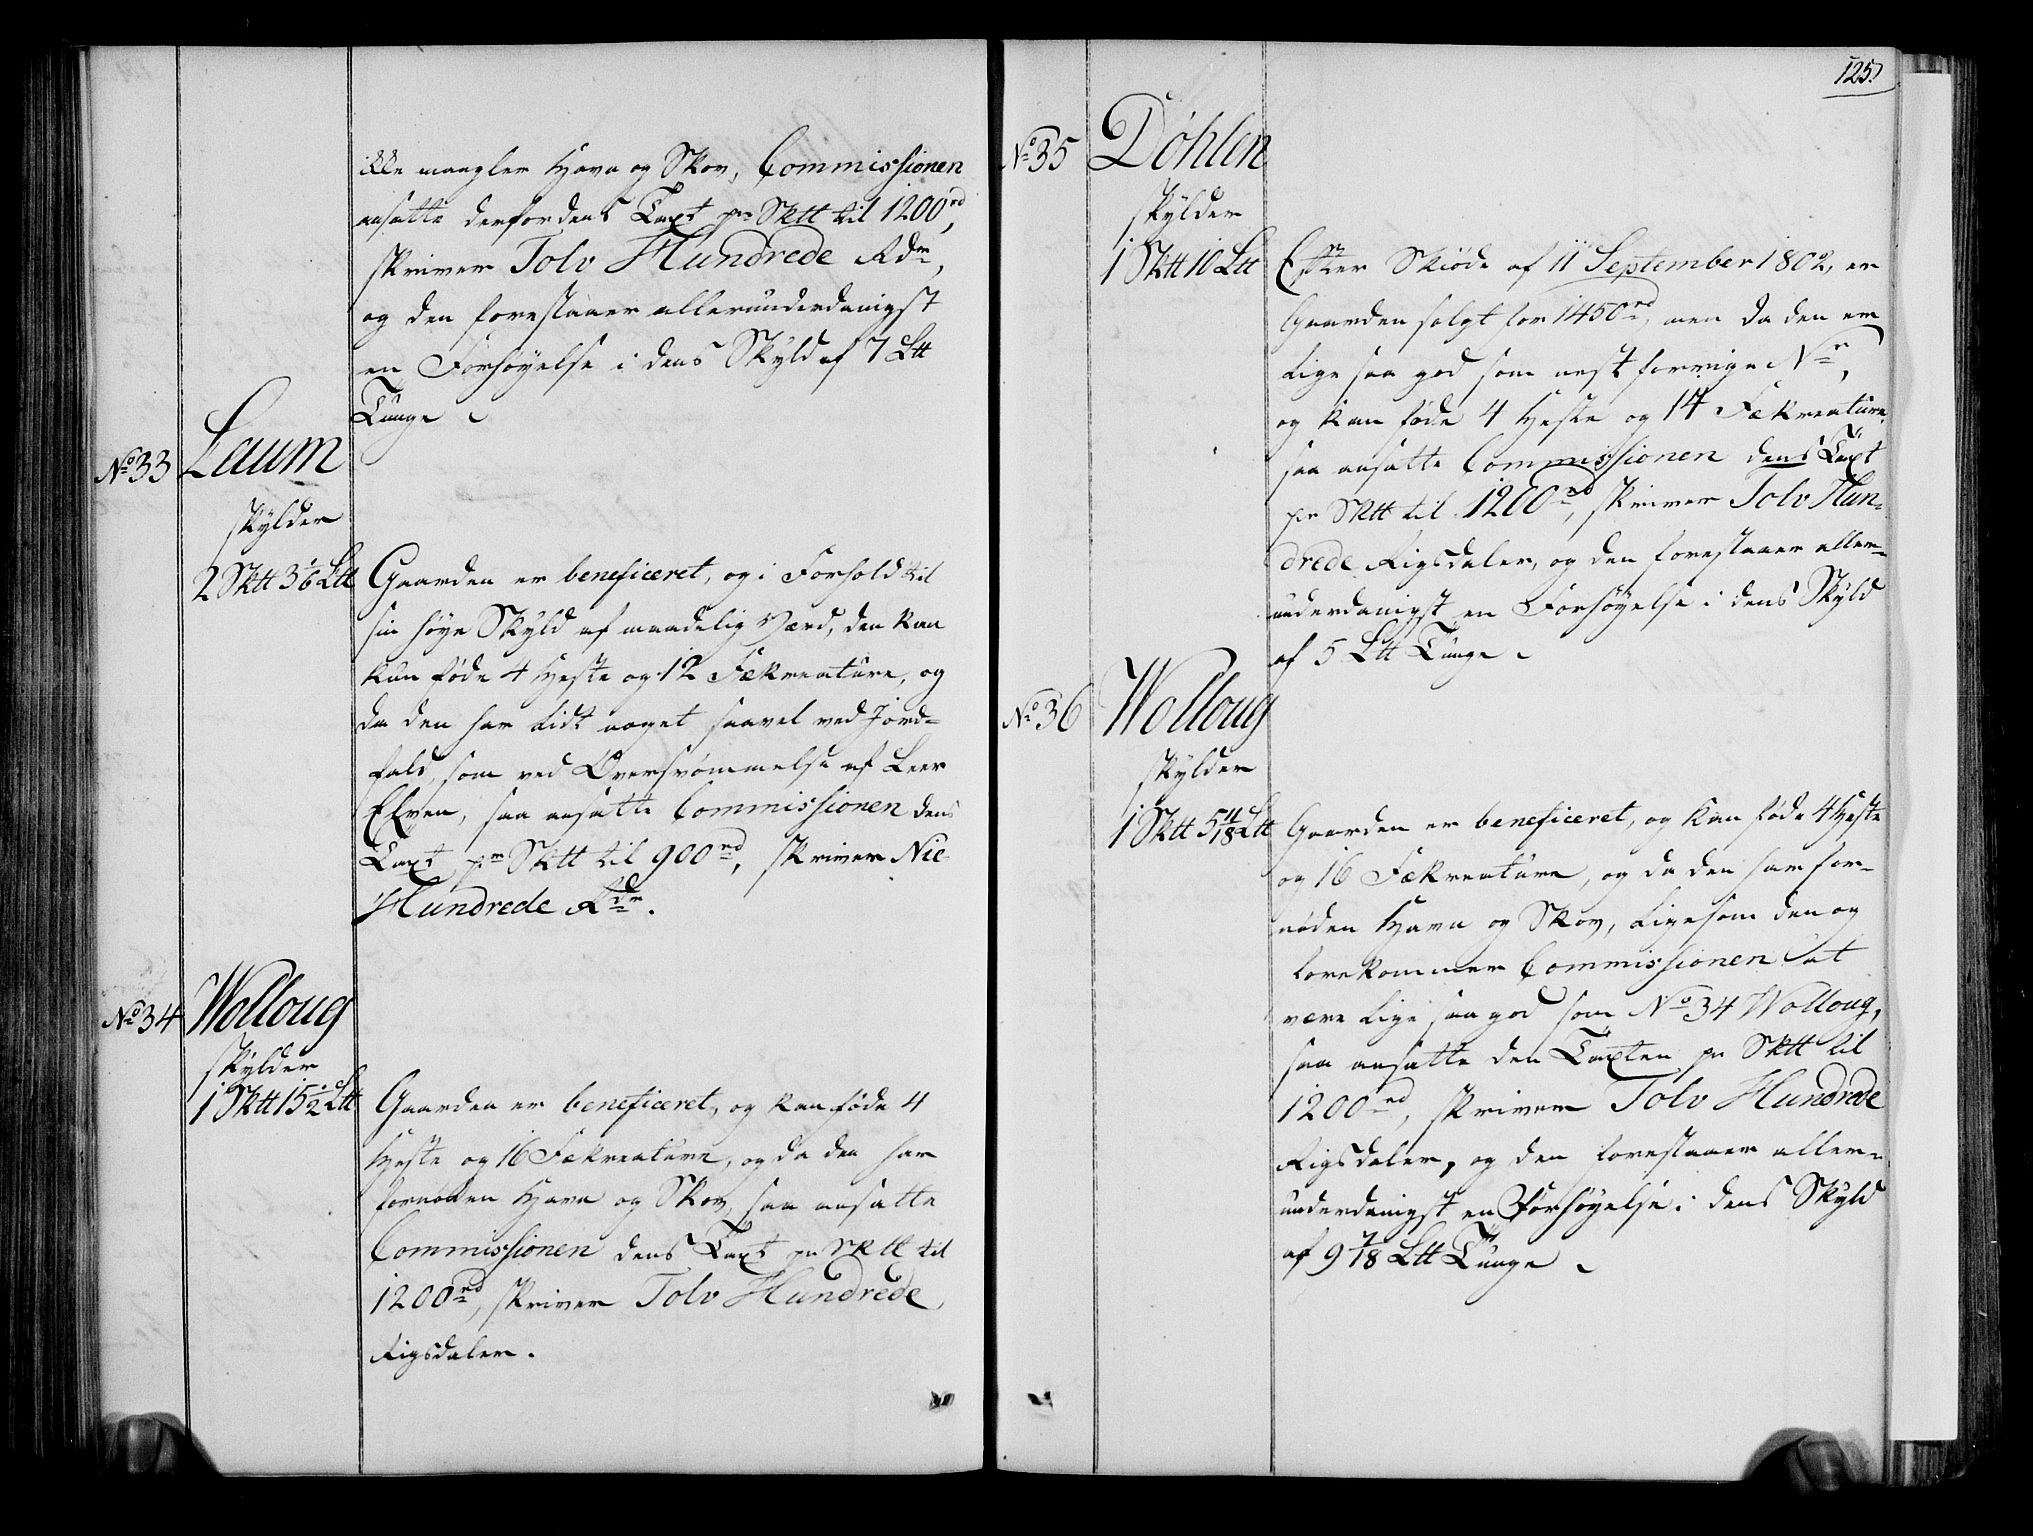 ikke mangler Havn og Skov, Commissionen
ansatte derfor dens Taxt pr Sktt til 1200 rd,
skriver Tolv Hundrede Rdr,
og den forestaaer allerunderdanigst
en Forhøyelse i dens Skyld af 7 Ltt
Tunge
No 33 Laum
skylder
2 Sktt 3 1/6 Ltt Gaarden er beneficeret, og i Forhold til
sin høye Skyld af maadelig Værd, den kan
kun føde 4 Heste og 12 Fækreature, og
da den har lidt noget saavel ved Jord=
fald, som ved Oversvømmelse af Leer
Elven, saa ansatte Commissionen dens
Taxt pr Sktt til 900 rd, skriver Nie
Hundrede Rdr.
No 34 Wolloug
skylder
1 Sktt 15 1/2 Ltt Gaarden er beneficeret, og kan føde 4
Heste og 16 Fækreature, og da den har
fornøden Havn og Skov, saa ansatte
Commissionen dens Taxt pr Sktt til
1200 rd, skriver Tolv Hundrede
Rigsdaler.
125.
No 35 Döhlen
skylder
1 Sktt 10 Ltt Efter Skiøde af 11 September 1802, er
Gaarden solgt for 1450 rd, men da den er
lige saa god som nest forrige Nr,
og kan føde 4 Heste og 14 Fækreature
saa ansatte Commissionen dens Taxt
pr Sktt til 1200 rd, skriver Tolv Hun=
drede Rigsdaler, og den forestaaer aller=
underdanigst en Forhøyelse i dens Skyld
af 5 Ltt Tunge
No 36 Wolloug
skylder
1 Sktt 5 11/18 Ltt Gaarden er beneficeret, og kan føde 4 Heste
og 16 Fækreature, og da den har for=
nøden Havn og Skov, ligesom den og
forekommer Commissionen at
være lige saa god som No 34 Wolloug,
saa ansatte den Taxten pr Sktt til
1200 rd, skriver Tolv Hundrede
Rigsdaler, og den forestaaer aller=
underdanigst en Forhøyelse i dens Skyld
af 9 7/18 Ltt Tunge